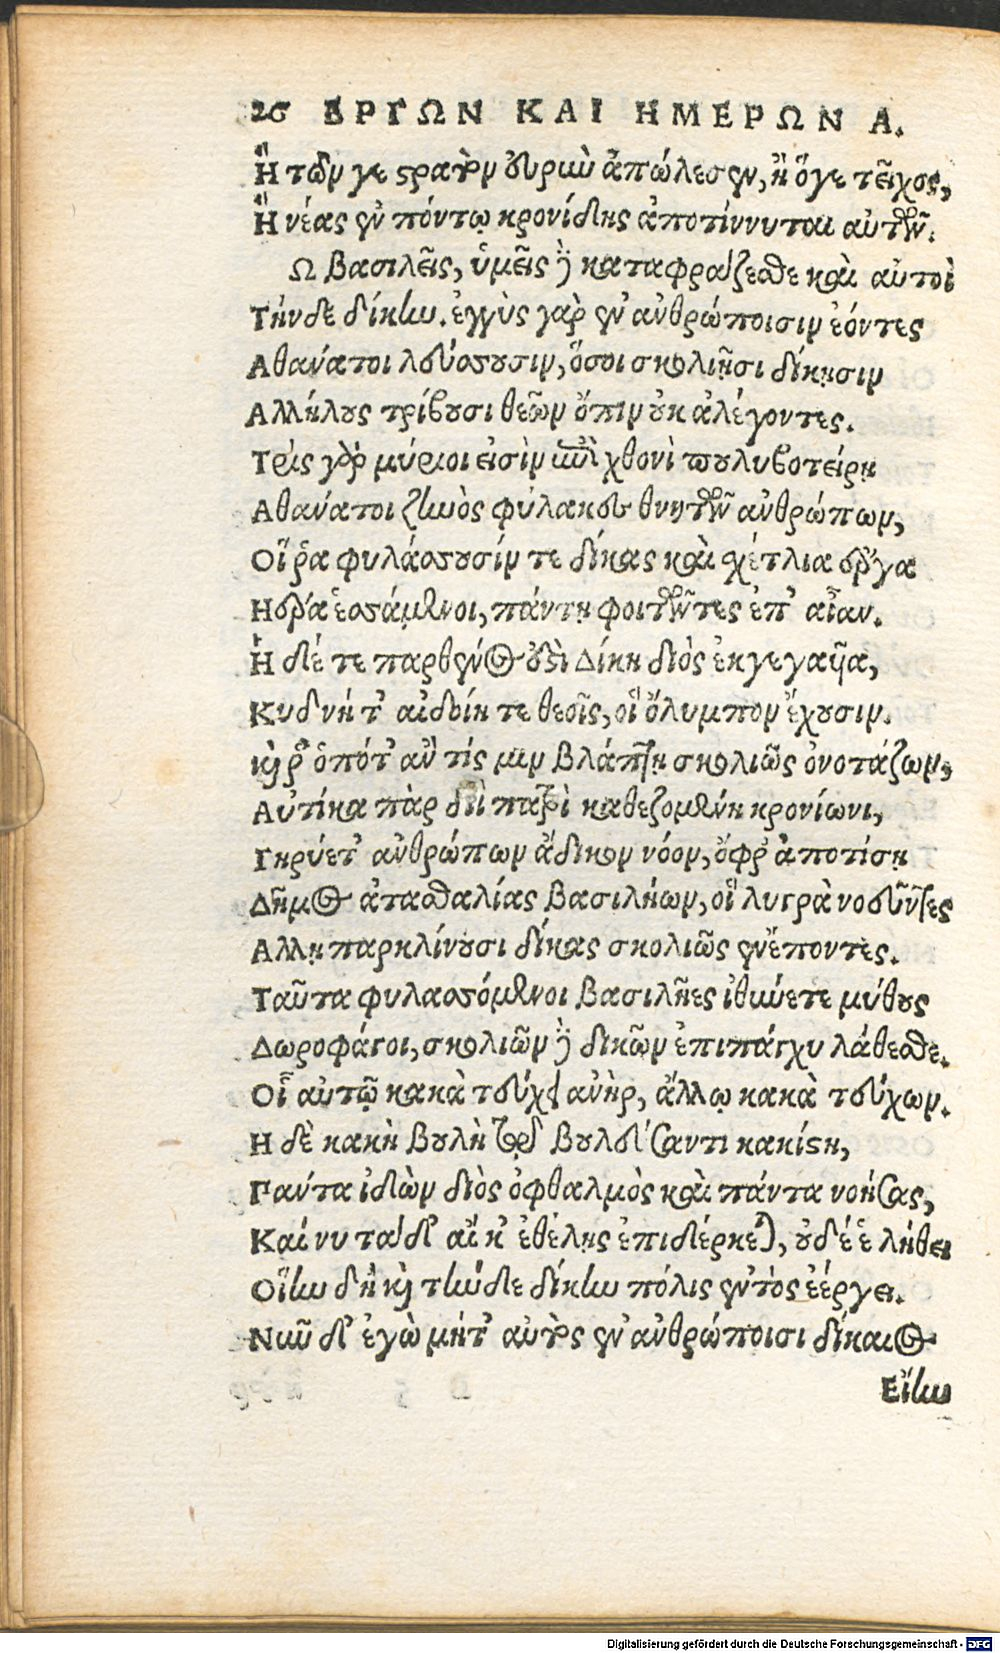 26 ΕΡΓΩΝ ΚΑΙ ΗΜΕΡΩΝ Α.
Ἢ τῶν γε στρατὸν εὐρὺν ἀπώλεσεν, ἢ ὅγε τεῖχος,
Ἢ νέας ἐν πόντῳ κρονίδης ἀποτίννυται αὐτῶν.
Ω βασιλεῖς, ὑμεῖς δὲ καταφράζεσθε καὶ αὐτοὶ
Τήνδε δίκην. ἐγγὺς γὰρ ἐν ἀνθρώποισιν ἐόντες
Αθανάτοι λεύσσουσιν, ὅσοι σκολιῇσι δίκῃσιν
Αλλήλους τρίβουσι θεῶν ὄπιν οὐκ ἀλέγοντες.
Τρὶς γὰρ μύριοι εἰσὶν ἐπὶ χθονὶ πουλυβοτείρῃ
Αθανάτοι ζηνὸς φύλακες θνητῶν ἀνθρώπων,
Οἵ ῥα φυλάσσουσίν τε δίκας καὶ σχέτλια ἔργα
Ηέρα ἑσσάμενοι, πάντη φοιτῶντες ἐπ' αἶαν.
Ἡ δέ τε παρθένος ἐστὶ Δίκη διὸς ἐκγεγαυῖα,
Κυδνή τ' αἰδοίη τε θεοῖς, οἳ ὄλυμπον ἔχουσιν.
καὶ ῥ' ὁπότ' ἄν τίς μιν βλάπτῃ σκολιῶς ὀνοτάζων,
Αὐτίκα πὰρ διὶ πατρὶ καθεζομένη κρονίωνι,
Γηρύετ' ἀνθρώπων ἄδικον νόον, ὄφρ' ἀποτίσῃ
Δῆμος ἀτασθαλίας βασιλήων, οἳ λυγρὰ νοεῦντες
Αλλῃ παρκλίνουσι δίκας σκολιῶς ἐνέποντες.
Ταῦτα φυλασσόμενοι βασιλῆες ἰθύνετε μύθους
Δωροφάγοι, σκολιῶν δὲ δικῶν ἐπιπάγχυ λάθεσθε.
Οἷ αὐτῷ κακὰ τεύχει ἀνὴρ, ἄλλῳ κακὰ τεύχων.
Η δὲ κακὴ βουλὴ τῷ βουλεύσαντι κακίστη,
Πάντα ἰδὼν διὸς ὀφθαλμὸς καὶ πάντα νοήσας,
Καί νυ τάδ' αἴ κ' ἐθέλῃς ἐπιδέρκεται, οὐδέ ἑ λήθει
Οἵην δὴ καὶ τήνδε δίκην πόλις ἐντὸς ἐέργει.
Νῦν δ' ἐγὼ μήτ' αὐτὸς ἐν ἀνθρώποισι δίκαιος
Εἴην
Digitalisierung gefördert durch die Deutsche Forschungsgemeinschaft - DFG